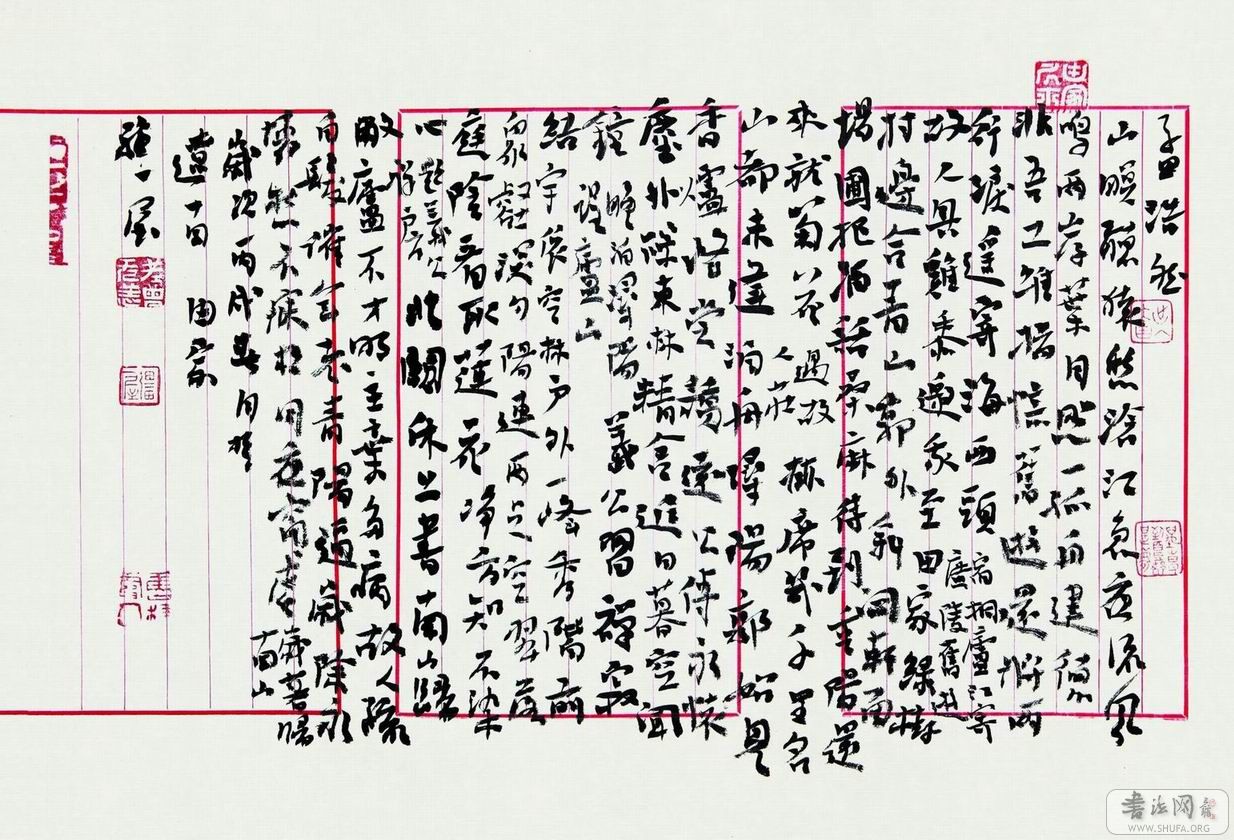 孟浩然
山暝聽猿愁滄江急夜流風
鳴兩岸葉月照一孤舟建德
非吾土維揚憶舊遊還將兩
行淚遥寄海西頭 宿桐廬江寄
廣陵舊遊
故人具雞黍邀我至田家綠樹
村邊合青山郭外斜開軒面
場圃把酒話桑麻待到重陽還
來就菊花 過故人莊 掛席幾千里名
山都未逢泊舟潯陽郭始見
香爐嘗讀遠公傳永懷
塵外蹤東林精舍近日暮空聞
鐘 晚泊潯陽望廬山 義公習禪寂
結宇依空林戶外一峰秀階前
衆壑深夕陽連雨足空翠落
庭陰看取蓮花淨方知不染
心 題義公禪房 北闕休上書南山歸
敝廬不才明主棄多病故人疏
白髮催年老青陽逼歲除永
懷愁不寐松月夜窗虛 歲暮歸
南山
歲次丙戌春月於
書法网
WWW.SHUFA.ORG